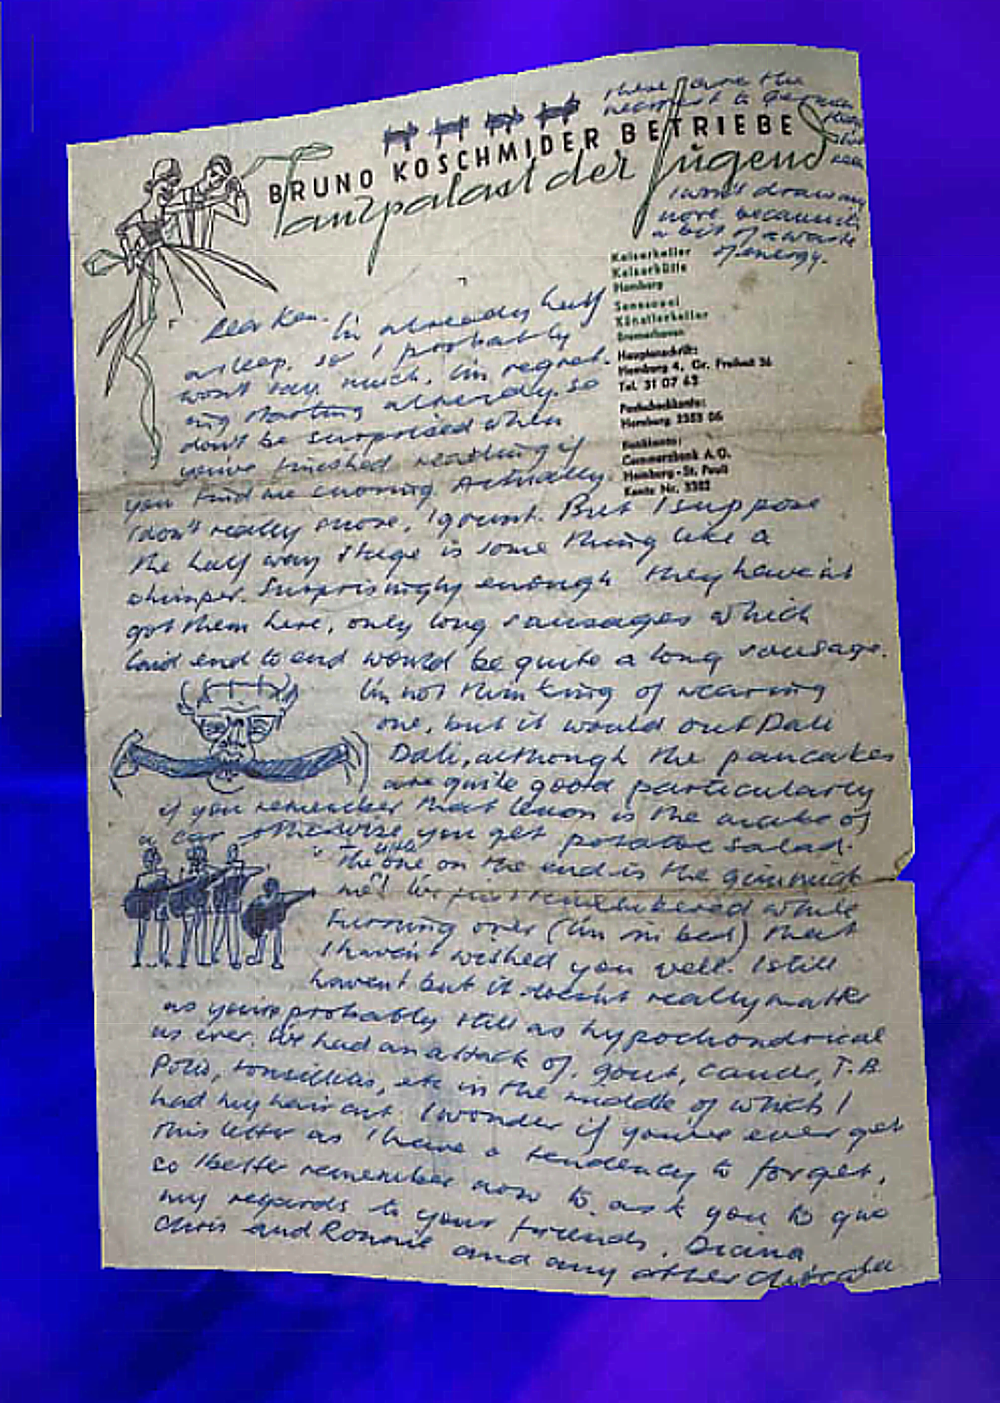 these are the
nearest to German
I won't draw any
more because it's
a bit of a waste
of energy.
BRUNO KOSCHMIDER BETRIEBE
Tanzpalast der Jugend
Kaiserkeller
Kaiserhütte
Hamburg
Künstlerkeller
Bremerhaven
Hauptanschrift:
Hamburg 4, Gr. Freiheit 36
Tel. 31 07 63
Postscheckkonto:
Hamburg
Bankkonto:
Commerzbank A.G.
Hamburg - St. Pauli
Konto Nr.
Dear Ken. I'm already half
asleep, so I probably
wont say much, I'm regret-
ing starting already. so
don't be surprised when
you've finished reading if
you find me snoring. Actually.
I don't really snore, I grunt. But I suppose
the half way stage is some thing like a
whimper. Surprisingly enough they have'nt
got them here, only long sausages which
laid end to end would be quite a long sausage.
I'm not thinking of wearing
one, but it would out Dali
Dali, although the pancakes
are quite good particularly
if you remember that lemon is the make of
a car otherwise you get potatoe salad.
The little one on the end is the gimmick
me! I've just remembered while
turning over (I'm in bed) that
I haven't wished you well. I still
havent but it doesnt really matter
as you're probably still as hypochondrical
as ever. We had an attack of, gout, cancer, T.B.
Polio, tonsillitis, etc in the middle of which I
had my hair cut. I wonder if you've ever get
this letter as I have a tendency to forget,
so I better remember now to ask you to give
my regards to your friends, Diana
Chris and Ronnie and any other